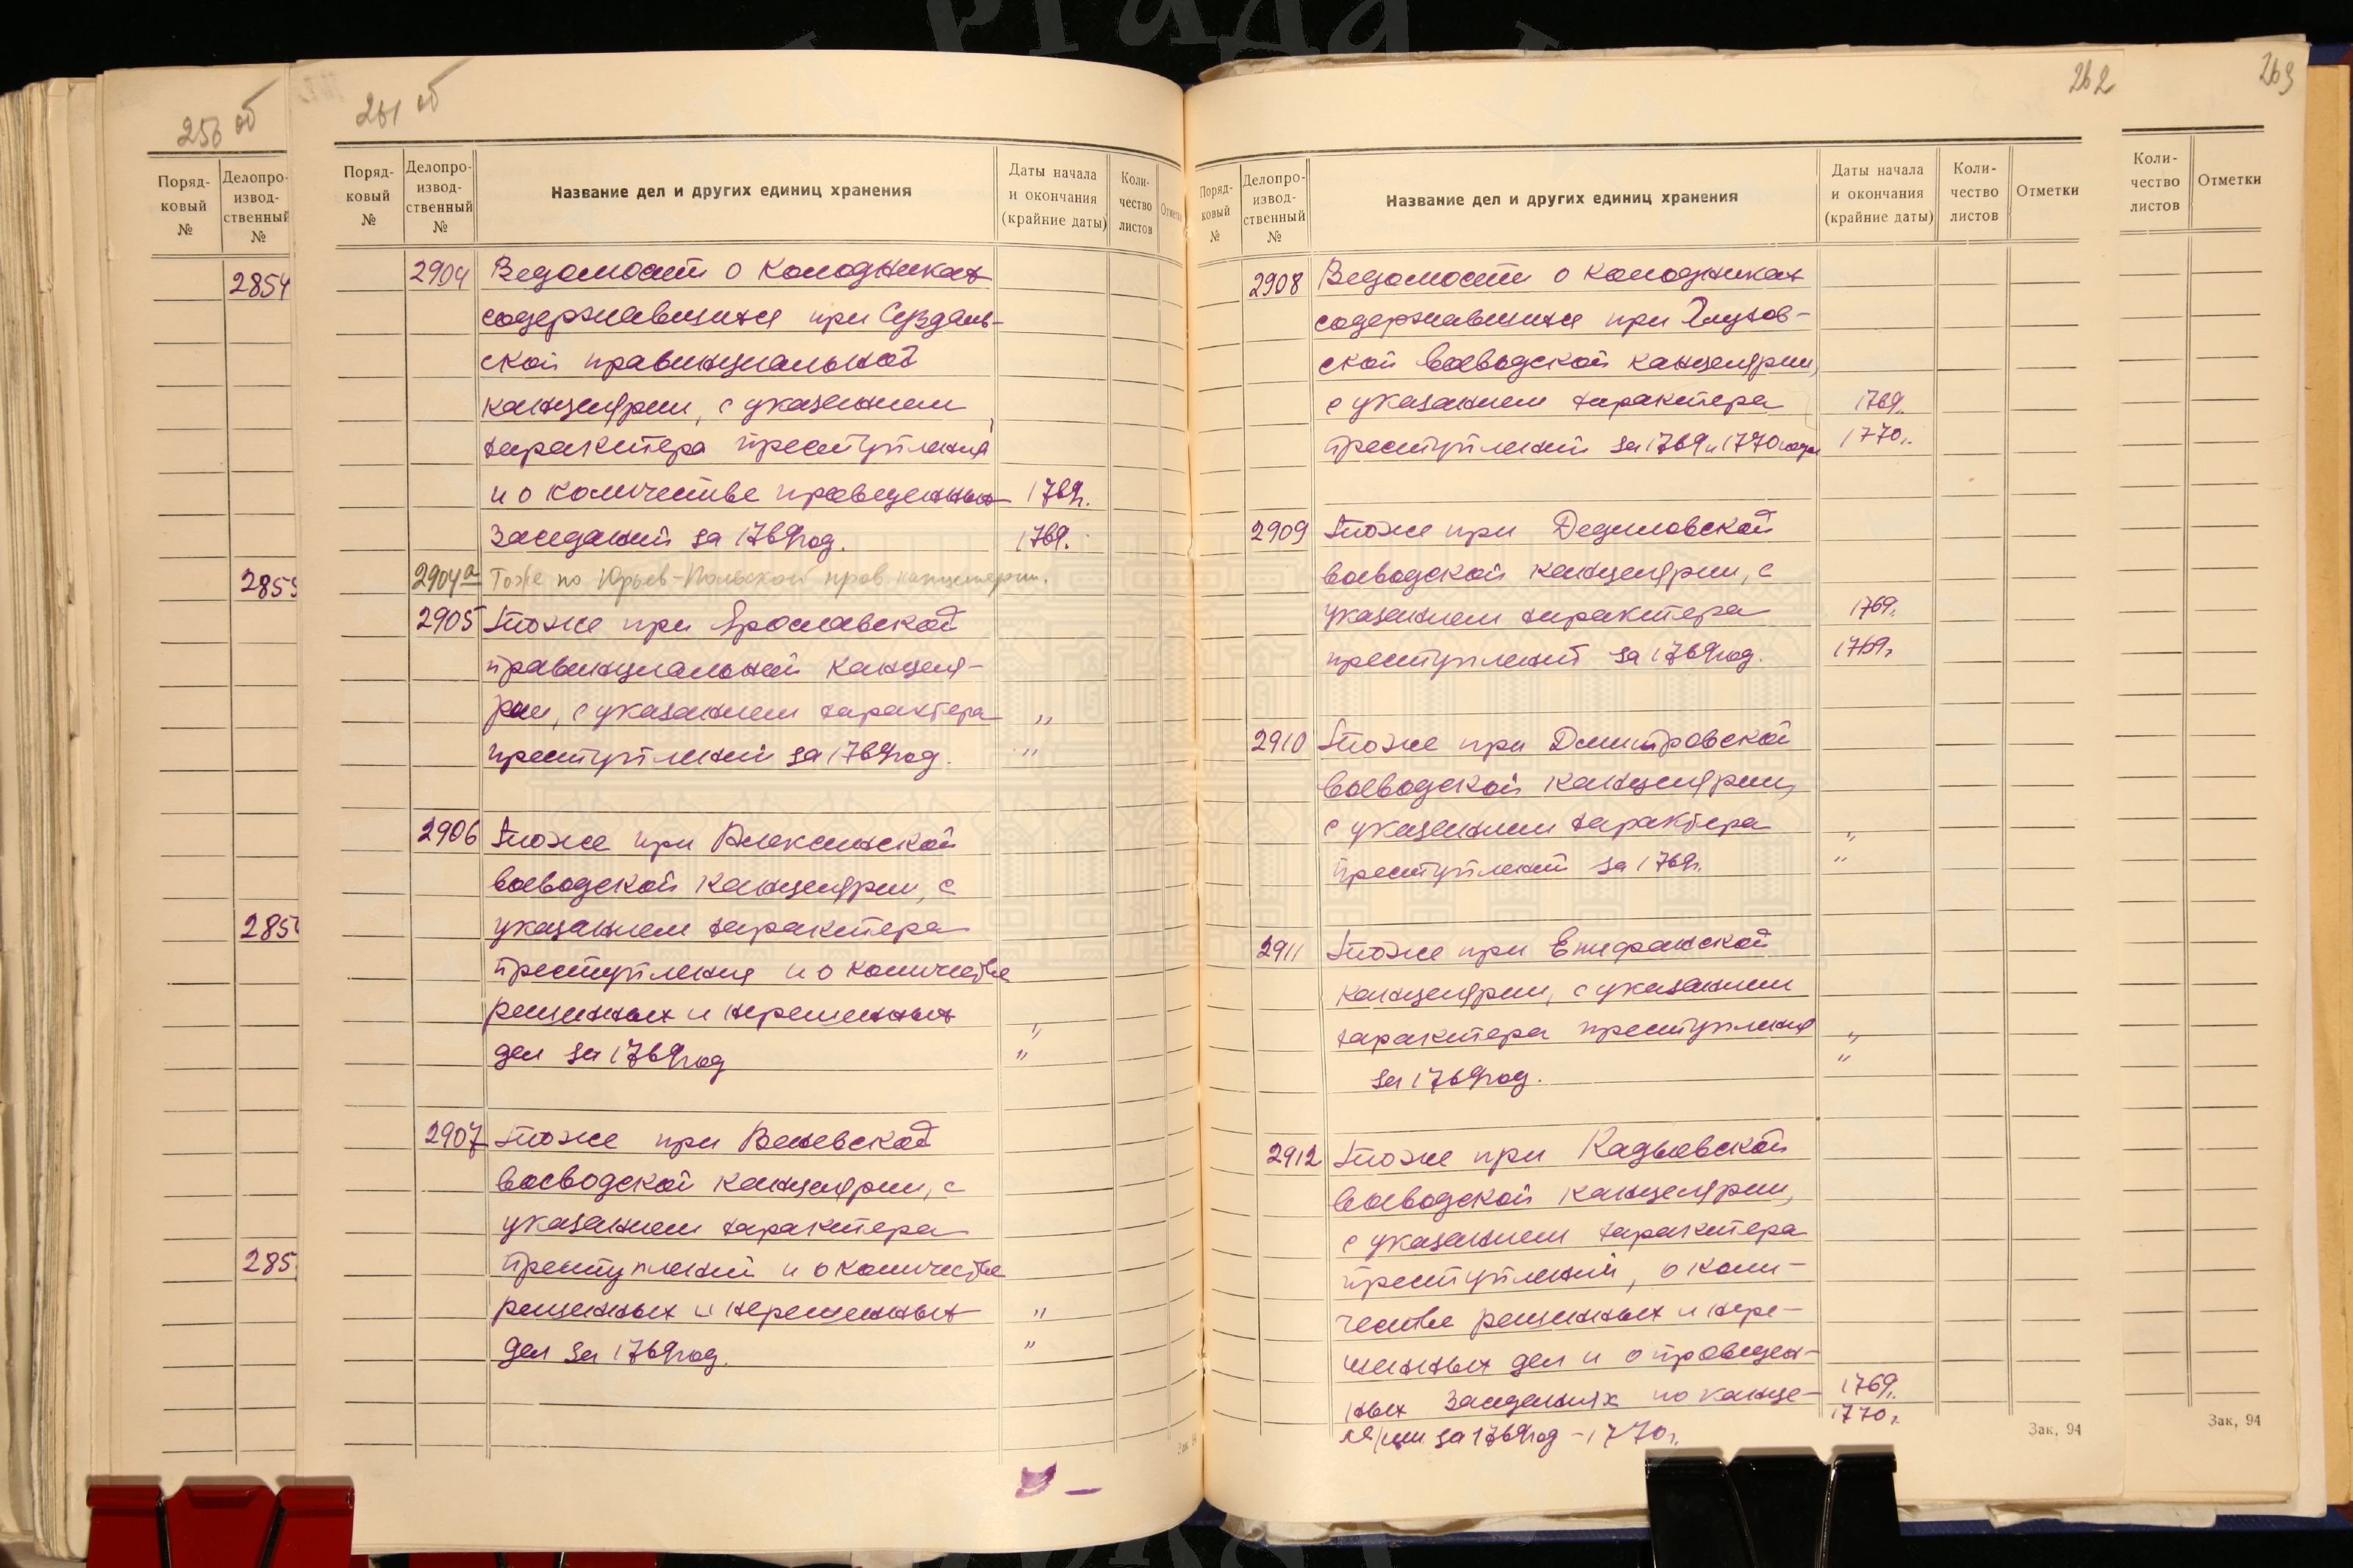 256 об
Поряд-
ковый
№
Делопро-
извод-
ственный
№
2854
2855
285
285
261 об
Поряд-
ковый
№
Делопро-
извод-
ственный
№
Название дел и других единиц хранения
Даты начала
и окончания
(крайние даты)
Коли-
чество
листов
2904 Ведомости о колодниках
содержавшихся при Суздаль-
ской правинциальной
канцелярии, с указанием
характера преступлений
и о количестве проведенных 1769г.
заседаний за 1769год. 1769.
2904а Тоже по Юрьев-Польской пров. канцелярии.
2905 Тоже при Ярославской
правинциальной канцеля-
рии, с указанием характера „
преступлений за 1769год. „
2906 Тоже при Алексинской
воеводской канцелярии, с
указанием характера
преступления и о количестве
решенных и нерешенных „
дел за 1769год „
2907 Тоже при Веневской
воеводской канцелярии, с
указанием характера
преступлений и о количестве
решенных и нерешенных „
дел за 1769год. „
262
Поряд-
ковый
№
Делопро-
извод-
ственный
№
Название дел и других единиц хранения
Даты начала
и окончания
(крайние даты)
Коли-
чество
листов
Отметки
2908 Ведомости о колодниках
содержавшихся при
ской воеводской канцелярии,
с указанием характера 1769г.
преступлений за 1769 и 1770 годы 1770г.
2909 Тоже при Дедиловской
воеводской канцелярии, с
указанием характера 1769г.
преступлений за 1769год. 1769г.
2910 Тоже при Дмитровской
воеводской канцелярии,
с указанием характера „
преступлений за 1769г. „
2911 Тоже при Епифанской
канцелярии, с указанием
характера преступления „
за 1769год. „
2912 Тоже при Кадыевской
воеводской канцелярии,
с указанием характера
преступлений, о коли-
честве решенных и нере-
шенных дел и о проведен-
ных заседаниях по канце- 1769г.
за 1769год - 1770г. 1770г.
Зак. 94
263
Коли-
чество
листов
Отметки
Зак. 94